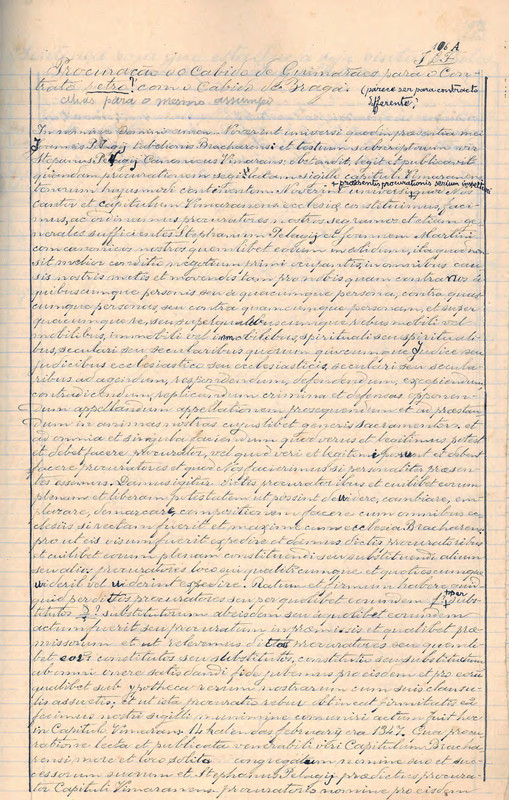 106 A
127
Procuração do Cabido de Guimarães para o Con-
trato petro? com o Cabido de Braga. (parece ser para contracto
differente?
dhuas para o mesmo assumpto
In nomine Domini amen. Noverint universi quod in præsentia mei
Joannis Pelagij Tabelionis Bracharensis et testium subscriptorum vir
Stepanus Pelagij Canonicus Vimaranis ostendit, legit et publicavit
quandam procurationem sigillatam sigillo capituli Vimaranensis
tenorum hujusmodi continentem Noverint universi quod nos
+ præsentis procurationis serium inspecturi
cantor et capitulum Vimaranensis ecclesiæ constituimus, faci-
mus, ac ordinamus procuratores nostros seu ramos et etiam ge-
nerales sufficientes Stephanum Pelagij et Joannem Martini
concanonicos nostros quemlibet eorum in solidum, ita quod non
sit melior conditio negotium primi occupantis, in omnibus cau-
sis nostris motis et movendis tam pro nobis quam contra nos a
quibuscumque personis seu a quacumque persona, contra quas-
cumque personas seu contra quamcumque personam, et super
quacumque re, seu super quibuscumque rebus mobili vel
mobilibus, immobili vel immobilibus, spirituali seu spirituali-
bus, seculari seu secularibus quorum quocumque Judice seu
judicibus ecclesiastico seu ecclesiasticis, seculari seu secula-
ribus ad agendum, respondendum, defendendum, excipiendum,
contradicendum, replicandum crimina et defensas opponen-
dum appellandum appellationem prosequendum et ad præstan-
dum in animas nostras cujuslibet generis sacramentum et
ad omnia et singula faciendum quæ verus et legitimus potest
et debet facere procurator, vel quod veri et legitimi possunt et debent
facere procuratores et quod nos faceremus si personaliter præsen-
tes essemus. Damus igitur dictis procuratoribus et cuilibet eorum
plenam et liberam potestatem ut possint dividere, cambiare, em-
plazare, demarcare, compositionem facere cum omnibus ec-
clesiis si rectam fuerit et maxime cum ecclesia Bracharen.
pro ut eis visum fuerit expedire et damus dictis procuratoribus
et cuilibet eorum plenam constituendi seu substituendi alium
seu alios procuratores loco sui quotiescumque et quotiescumque
viderit vel viderint expedire. Ratum et firmum habere quid
quid per dictos procuratores seu per quodlibet eorundem per subs-
titutos D? substitutorum ab eisdem seu a quolibet eorundem
actum fuerit seu procuratum in præmissis et quolibet præ-
missorum et ut relevemus dictos procuratores seu quemli-
bet eorum constitutos seu substitutos, constitutis seu substitutum
ab omni onere satis dandi fide jubemus pro eisdem et pro eorum
quolibet sub ypotheca rerum nostrarum cum suis clausu-
lis assuetis, et ut ista procuratio robur obtineat firmitatis ea
fecimus nostri sigilli munimine comuniri actum fuit hoc
in Capitulo Vimarans. 14 kalendas february era 1347. Qua procu-
ratione lecta et publicata venerabili viri Capitulum Bracha-
rensi, more et loco solito congregatum nomine suo et suc-
cessorum suorum et Stephanus Pelagij prædictus procura-
tor Capituli Vimaranens. procuratorio nomine pro eisdem